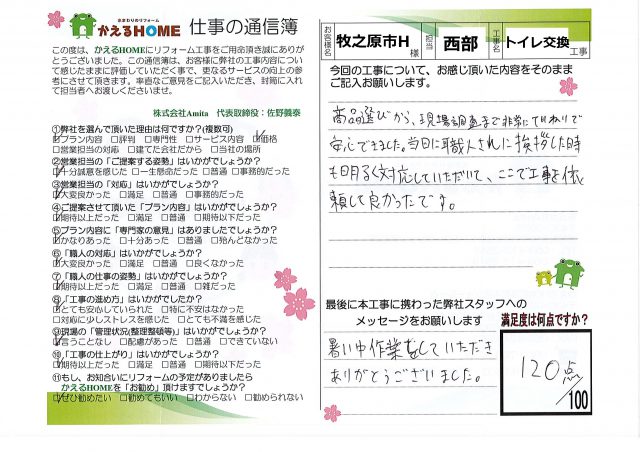 水まわりのリフォーム
かえるHOME 仕事の通信簿
この度は、かえるHOMEにリフォーム工事をご用命頂き誠にありが
とうございました。この通信簿は、お客様に弊社の工事内容につい
て感じたままに評価していただく事で、更なるサービスの向上の参
考にさせて頂きます。率直なご意見をご記入いただき、封筒に入れ
て担当者へお渡しくださいませ。
株式会社Amita 代表取締役：佐野義泰
①弊社を選んで頂いた理由は何ですか?(複数可)
☑プラン内容 □評判 □専門性 □サービス内容 ☑価格
□営業担当の対応 □建てた会社だから □当社の場所
②営業担当の「ご提案する姿勢」はいかがでしょうか?
☑十分誠意を感じた □一生懸命だった □普通 □事務的だった
③営業担当の「対応」はいかがでしょうか?
☑大変良かった □満足 □普通 □事務的だった
④ご提案させて頂いた「プラン内容」はいかがでしょうか?
☑期待以上だった □満足 □普通 □期待以下だった
⑤プラン内容に「専門家の意見」はありましたでしょうか?
☑かなりあった □十分あった □普通 □殆んどなかった
⑥「職人の対応」はいかがでしょうか?
☑大変良かった □満足 □普通 □良くなかった
⑦「職人の仕事の姿勢」はいかがでしょうか?
☑期待以上だった □満足 □普通 □雑だった
⑧「工事の進め方」はいかがでしたか?
☑とても安心していられた □特に不安はなかった
□対応に少しストレスを感じた □とても不満を感じた
⑨現場の「管理状況(整理整頓等)」はいかがでしょうか?
☑言うことなし □配慮があった □普通 □できていない
⑩「工事の仕上がり」はいかがでしょうか?
☑期待以上だった □満足 □普通 □期待以下だった
⑪もし、お知合いにリフォームの予定がありましたら
かえるHOMEを「お勧め」頂けますでしょうか?
☑ぜひ勧めたい □勧めてもいい □わからない □勧められない
お客様名 牧之原市H 様 担当 西部 工事名 トイレ交換 工事
今回の工事について、お感じ頂いた内容をそのまま
ご記入お願いします。
商品選びから、現場調査まで非常にていねいで
安心できました。当日に職人されに挨拶した時
も明るく対応していただいて、ここで工事を依
頼して良かったです。
最後に本工事に携わった弊社スタッフへの
メッセージをお願いします
暑い中作業をしていただき
ありがとうございました。
満足度は何点ですか?
120点
/100